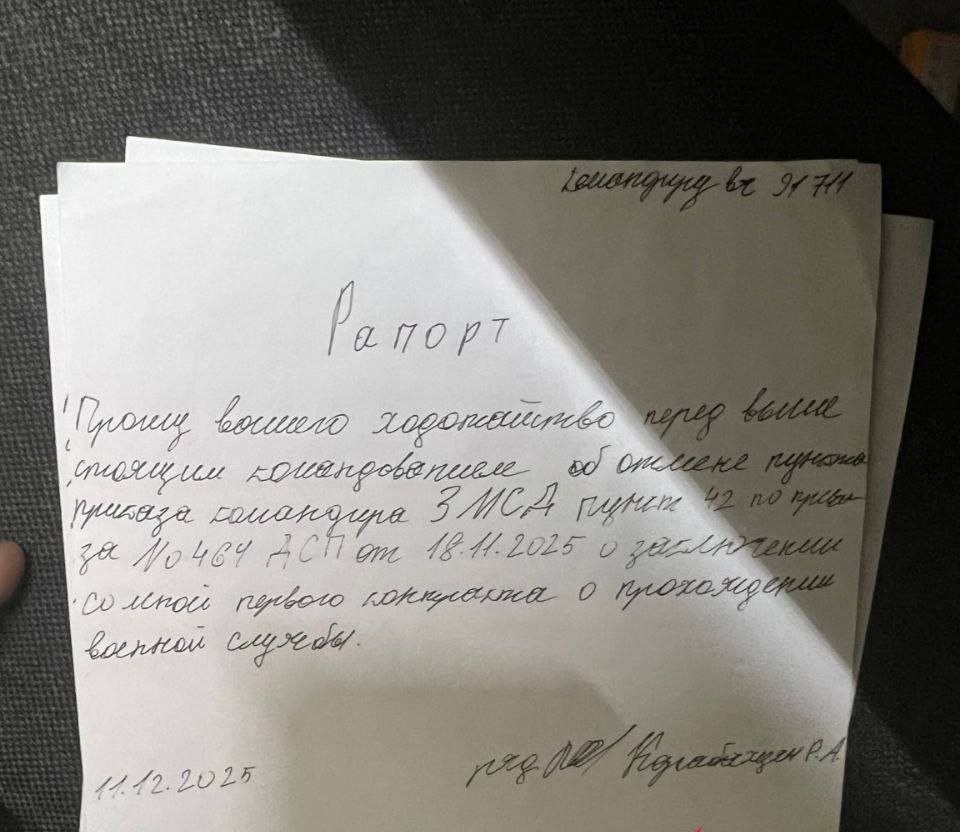 Командиру вч 91711
Рапорт
Прошу вашего ходотайство перед выше
стоящим командованием об отмене пункта
приказа командира 3 МСД пункт 42 по прика
за No 464 ДСП от 18.11.2025 о заключении
со мной первого контракта о прохождении
военной службы.
11.12.2025 ряд. Р.А.